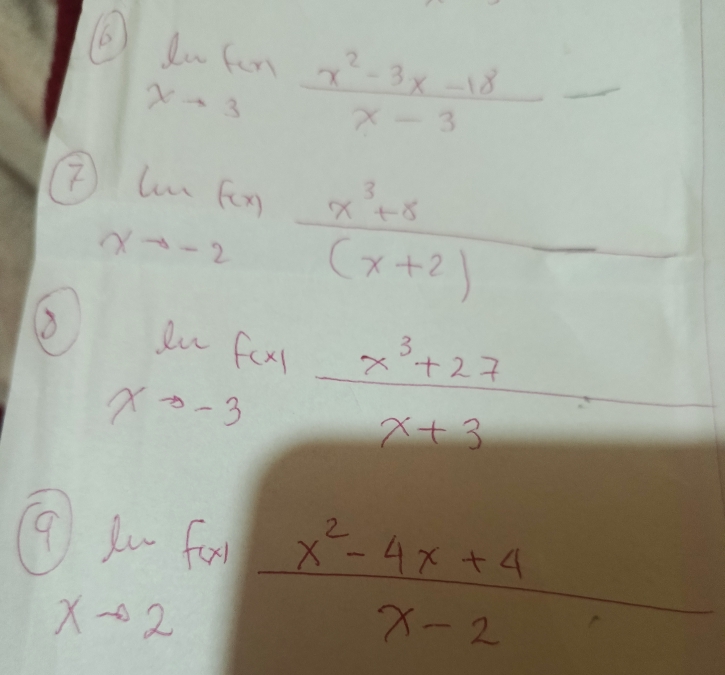 ⑥ lim f(x) x² - 3x - 18
x → 3 x - 3
⑦ lim f(x) x³ + 8
x → -2 (x + 2)
⑧ lim f(x) x³ + 27
x → -3 x + 3
⑨ lim f(x) x² - 4x + 4
x → 2 x - 2